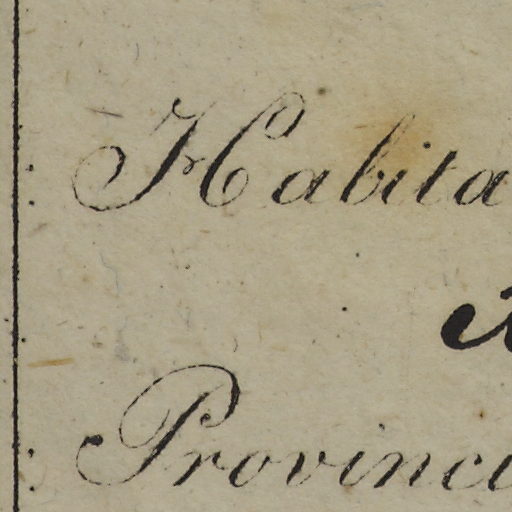 Habita
Provinci